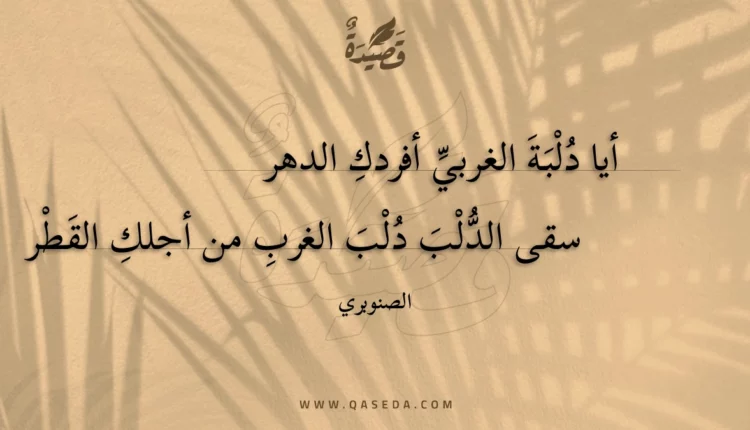 قَصِيْدَةٌ
أيا دُلْبَةَ الغربيِّ أفردكِ الدهر
سقى الدُّلْبَ دُلْبَ الغربِ من أجلكِ القَطْر
الصنوبري
WWW.QASEDA.COM